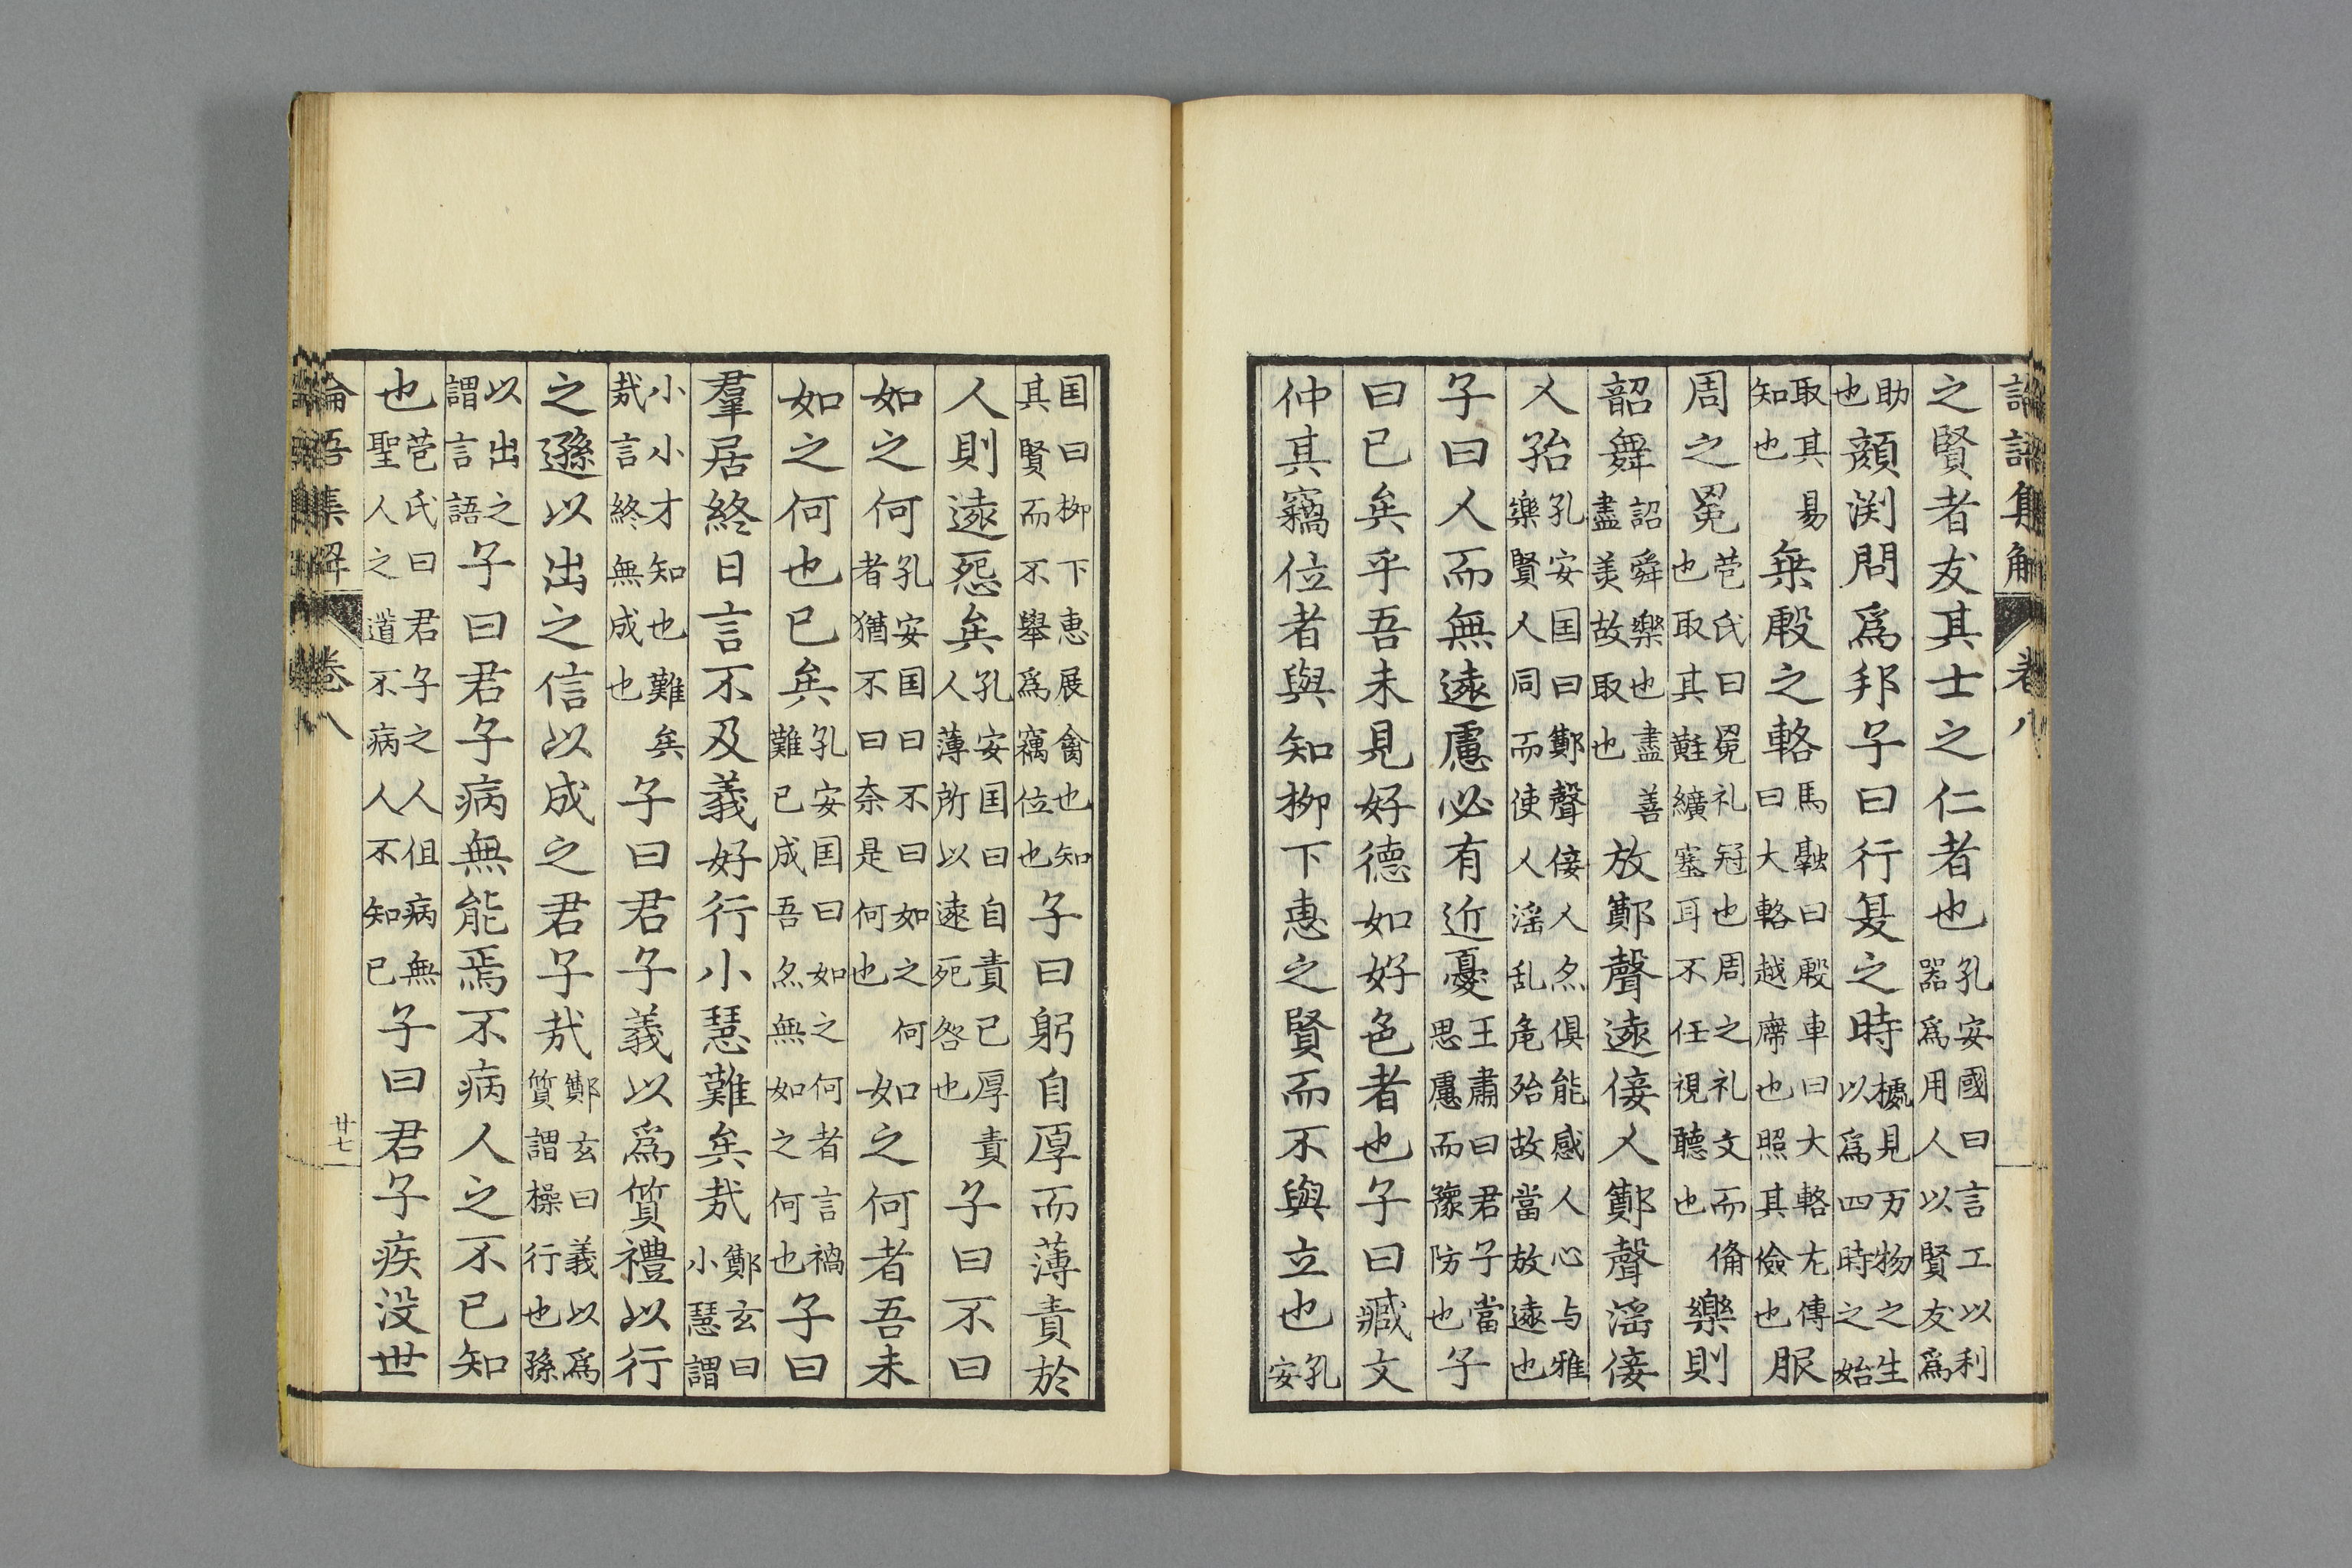 論語集解 卷八
之賢者友其士之仁者也孔安國曰言工以利器爲用人以賢友爲
助也顔渕問爲邦子曰行夏之時據見万物之生以爲四時之始
取其易知也乗殷之輅馬融曰殷車曰大輅左傳曰大輅越席也照其儉也服
周之冕苞氏曰冕礼冠也周之礼文而俻也取其黈纊塞耳不任視聽也樂則
韶舞韶舜樂也盡善盡美故取也放鄭聲遠佞人鄭聲淫佞
人殆孔安国曰鄭聲佞人亦俱能感人心与雅樂賢人同而使人淫乱危殆故當放遠也
子曰人而無遠慮必有近憂王肅曰君子當思慮而豫防也子
曰已矣乎吾未見好德如好色者也子曰臧文
仲其竊位者與知柳下惠之賢而不與立也孔安
国曰柳下惠展禽也知其賢而不舉爲竊位也子曰躬自厚而薄責於
人則遠怨矣孔安国曰自責己厚責人薄所以遠怨咎也子曰不曰
如之何孔安国曰不曰如之何者猶不曰奈是何也如之何者吾未
如之何也已矣孔安国曰如之何者言禍難已成吾亦無如之何也子曰
羣居終日言不及義好行小慧難矣哉鄭玄曰小慧謂
小小才知也難矣哉言終無成也子曰君子義以爲質禮以行
之遜以出之信以成之君子哉鄭玄曰義以爲質謂操行也孫
以出之謂言語子曰君子病無能焉不病人之不已知
也苞氏曰君子之人但病無聖人之道不病人不知已子曰君子疾没世
論語集解 卷八 廿七